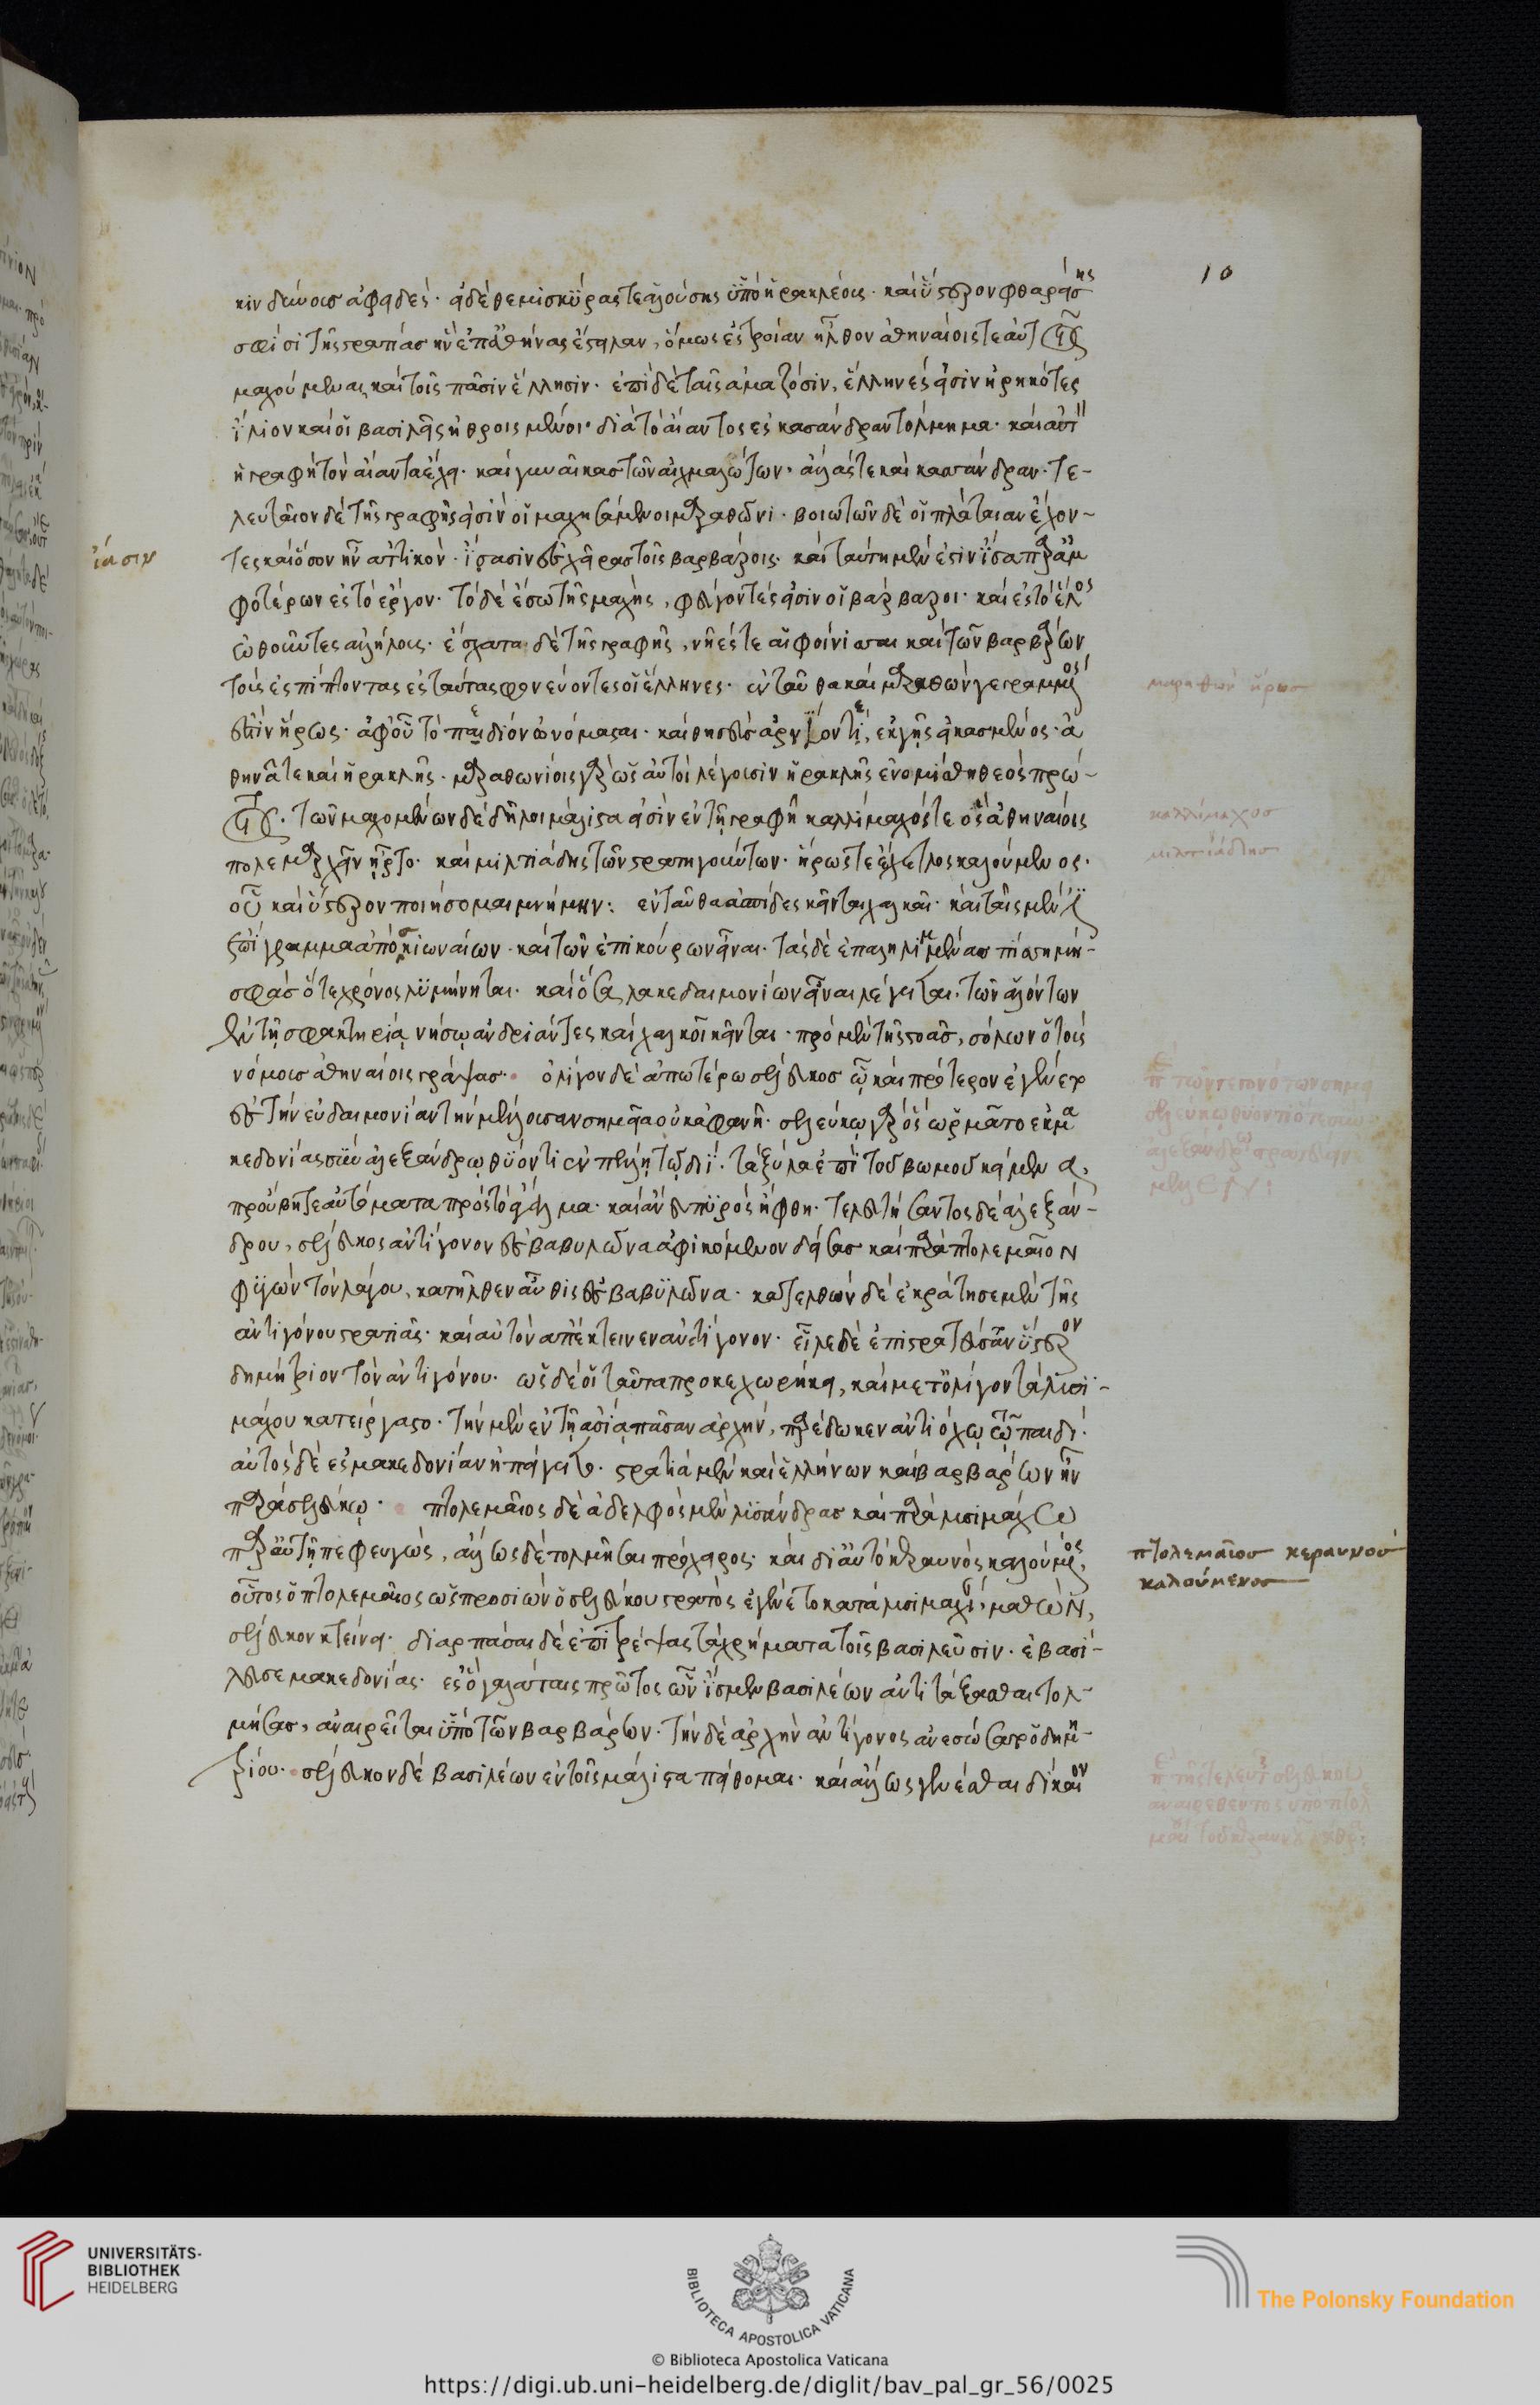 10
κινδύνους ἀφειδές· εἰ δὲ θεμισκύρας τε ἁλούσης ὑπὸ ἡρακλέους· καὶ ὕστερον φθαρείσης
σφίσι τῆς στρατιᾶς ἣν ἐπ' ἀθήνας ἔστειλαν, ὅμως ἐς τροίαν ἦλθον ἀθηναίοις τε αὐτοῖς
μαχούμεναι καὶ τοῖς πᾶσιν ἕλλησιν· ἐπὶ δὲ ταῖς ἀμαζόσιν, ἕλληνές εἰσιν ἡρηκότες
ἴλιον καὶ οἱ βασιλεῖς ἠθροισμένοι διὰ τὸ αἴαντος ἐς κασάνδραν τόλμημα· καὶ αὐτὸν
ἡ γραφὴ τὸν αἴαντα ἔχει· καὶ γυναῖκας τῶν αἰχμαλώτων· ἄλλας τε καὶ κασάνδραν· τε-
λευταῖον δὲ τῆς γραφῆς εἰσὶν οἱ μαχησάμενοι μαραθῶνι· βοιωτῶν δὲ οἱ πλάταιαν ἔχον-
ἴασιν
τες καὶ ὅσον ἦν ἀττικὸν· ἴσασιν ἐς χεῖρας τοῖς βαρβάροις· καὶ ταύτῃ μέν ἐστιν ἴσα παρ' ἀμ
φοτέρων ἐς τὸ ἔργον· τὸ δὲ ἔσω τῆς μάχης, φεύγοντές εἰσιν οἱ βάρβαροι· καὶ ἐς τὸ ἕλος
ὠθοῦντες ἀλλήλους· ἔσχαται δὲ τῆς γραφῆς, νῆές τε αἱ φοίνισσαι καὶ τῶν βαρβάρων
τοὺς ἐσπίπτοντας ἐς ταύτας φονεύοντες οἱ ἕλληνες· ἐνταῦθα καὶ μαραθὼν γεγραμμένος
μαραθὼν ἥρως
ἐστὶν ἥρως· ἀφ' οὗ τὸ πεδίον ὠνόμασται· καὶ θησεὺς ἀνιόντι, ἐκ γῆς εἰκασμένος· ἀ
θηνᾶ τε καὶ ἡρακλῆς· μαραθωνίοις γὰρ ὡς αὐτοὶ λέγουσιν ἡρακλῆς ἐνομίσθη θεὸς πρώ-
τοις· τῶν μαχομένων δὲ δῆλοι μάλιστα εἰσὶν ἐν τῇ γραφῇ καλλίμαχός τε ὃς ἀθηναίοις
καλλίμαχος
πολεμαρχεῖν ᾕρητο· καὶ μιλτιάδης τῶν στρατηγούντων· ἥρως τε ἔχετλος καλούμενος·
μιλτιάδης
οὗ καὶ ὕστερον ποιήσομαι μνήμην: ἐνταῦθα ἀσπίδες κεῖνται χαλκαῖ· καὶ ταῖς μέν
ἐπίγραμμα ἀπὸ σκιωναίων· καὶ τῶν ἐπικούρων εἶναι· τὰς δὲ ἐπαληλιμμένας πίσσῃ μή-
σφᾶς ὅ τε χρόνος λυμήνηται· καὶ ὁ λακεδαιμονίων εἶναι λέγεται, τῶν ἁλόντων
ἐν τῇ σφακτηρίᾳ νήσῳ ἀνδριάντες καὶ χαλκοῖ κεῖνται· πρὸ μὲν τῆς στοᾶς, σόλων ὁ τοὺς
νόμους ἀθηναίοις γράψας· ὀλίγον δὲ ἀπωτέρω σέλευκος ᾧ καὶ πρότερον ἐγένετο
ἐς τὴν εὐδαιμονίαν τὴν μέλλουσαν σημεῖα οὐκ ἀφανῆ· σελεύκῳ γὰρ ὡς ὡρμᾶτο ἐκ μα
κεδονίας σὺν ἀλεξάνδρῳ θύοντι ἐν πέλλῃ τῷ διί· τὰ ξύλα ἐπὶ τοῦ βωμοῦ κείμενα,
προὔβη τε αὐτόματα πρὸς τὸ ἄγαλμα· καὶ ἄνευ πυρὸς ἥφθη· τελευτήσαντος δὲ ἀλεξάν-
δρου, σέλευκος ἀντίγονον ἐς βαβυλῶνα ἀφικόμενον δείσας καὶ παρὰ πτολεμαῖον
φυγὼν τὸν λάγου, κατῆλθεν αὖθις ἐς βαβυλῶνα· κατελθὼν δὲ ἐκράτησε μὲν τῆς
ἀντιγόνου στρατιᾶς· καὶ αὐτὸν ἀπέκτεινεν ἀντίγονον· εἷλε δὲ ἐπιστρατεύσαν ὕστερον
δημήτριον τὸν ἀντιγόνου· ὡς δέ οἱ ταῦτα προκεχωρήκει, καὶ μετ' ὀλίγον τὰ λυσι-
μάχου κατείργαστο· τὴν μὲν ἐν τῇ ἀσίᾳ πᾶσαν ἀρχὴν, παρέδωκεν ἀντιόχῳ τῷ παιδί·
αὐτὸς δὲ ἐς μακεδονίαν ἠπείγετο· στρατιὰ μὲν καὶ ἑλλήνων καὶ βαρβάρων ἦν
παρὰ σελεύκῳ· πτολεμαῖος δὲ ἀδελφὸς μὲν λυσάνδρας καὶ παρὰ λυσιμάχῳ
παρ' αὐτὴν πεφευγὼς, ἄλλως δὲ τολμῆσαι πρόχειρος· καὶ δι' αὐτὸ κεραυνὸς καλούμενος,
πτολεμαῖος κεραυνὸς
καλούμενος
οὗτος ὁ πτολεμαῖος ὡς προσιὼν ὁ σελεύκου στρατὸς ἐγένετο κατὰ λυσιμαχίαν, λαθὼν,
σέλευκον κτείνει· διαρπάσαι δὲ ἐπιτρέψας τὰ χρήματα τοῖς βασιλεῦσιν· ἐβασί-
λευσε μακεδονίας· ἐς ὃ γαλάταις πρῶτος ὧν ἴσμεν βασιλέων ἀντιτάξασθαι τολ-
μήσας, ἀναιρεῖται ὑπὸ τῶν βαρβάρων· τὴν δὲ ἀρχὴν ἀντίγονος ἀνεσώσατο ὁ δημη-
τρίου· σέλευκον δὲ βασιλέων ἐν τοῖς μάλιστα πείθομαι· καὶ ἄλλως γενέσθαι δίκαιον
UNIVERSITÄTS-
BIBLIOTHEK
HEIDELBERG
BIBLIOTECA APOSTOLICA VATICANA
The Polonsky Foundation
© Biblioteca Apostolica Vaticana
https://digi.ub.uni-heidelberg.de/diglit/bav_pal_gr_56/0025